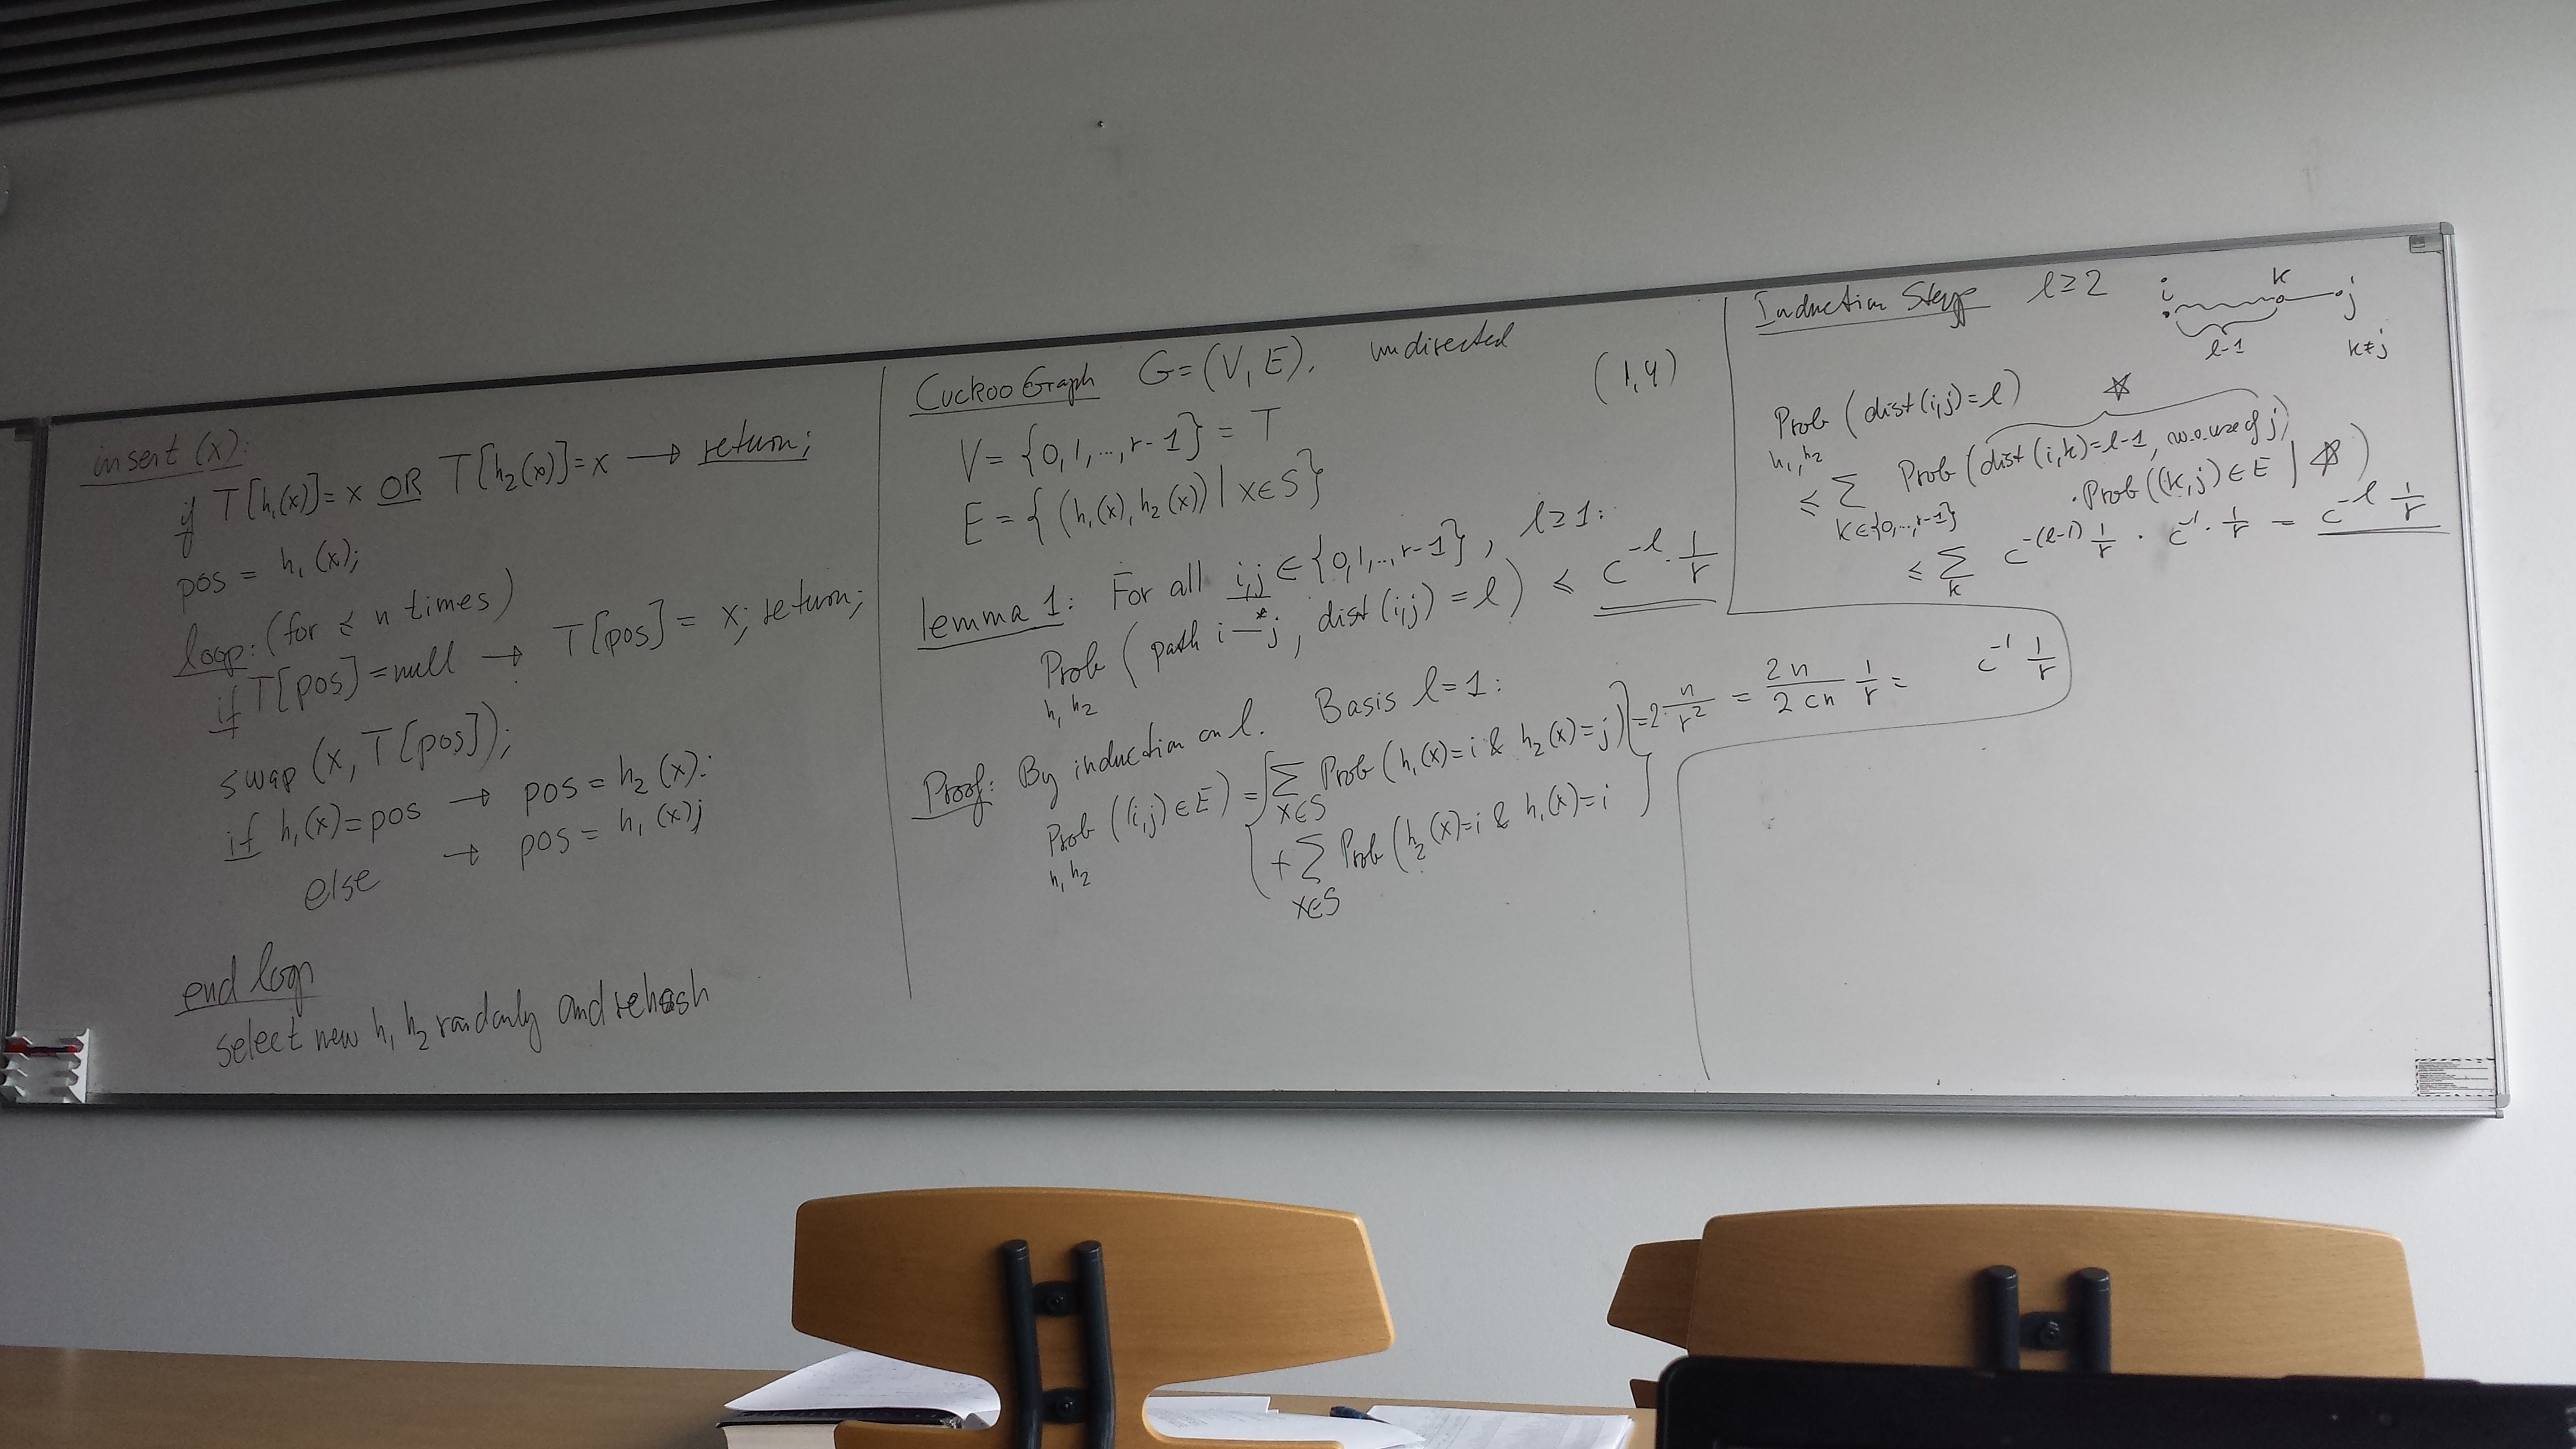 insert (x):
if T[h₁(x)]=x OR T[h₂(x)]=x → return;
pos = h₁(x);
loop: (for ≤ n times)
if T[pos]=null → T[pos] = x; return;
swap (x, T[pos]);
if h₁(x)=pos → pos = h₂(x):
else → pos = h₁(x);
end loop
select new h₁ h₂ randomly and rehash
Cuckoo Graph G=(V,E). undirected
(1,4)
V= {0,1,...,r-1} = T
E = { (h₁(x), h₂(x)) | x∈S }
Lemma 1: For all i,j ∈ {0,1,...,r-1}, l≥1:
Prob ( path i —* j, dist (i,j) = l ) ≤ c^{-l} · 1/r
h₁ h₂
Proof: By induction on l. Basis l=1:
Prob ((i,j) ∈ E) = { Σ Prob (h₁(x)=i & h₂(x)=j) } = 2 n/r² = 2n/2cn 1/r = c^{-1} 1/r
h₁ h₂ x∈S
+ Σ Prob (h₂(x)=i & h₁(x)=i
x∈S
Induction Step l≥2
i k j
l-1 k≠j
Prob (dist(i,j)=l) ☆
h₁, h₂
≤ Σ Prob (dist(i,k)=l-1, w.o. use of j)
k∈{0,...,r-1} · Prob ((k,j) ∈ E | ☆)
≤ Σ c^{-(l-1)} 1/r · c^{-1} · 1/r = c^{-l} 1/r
k